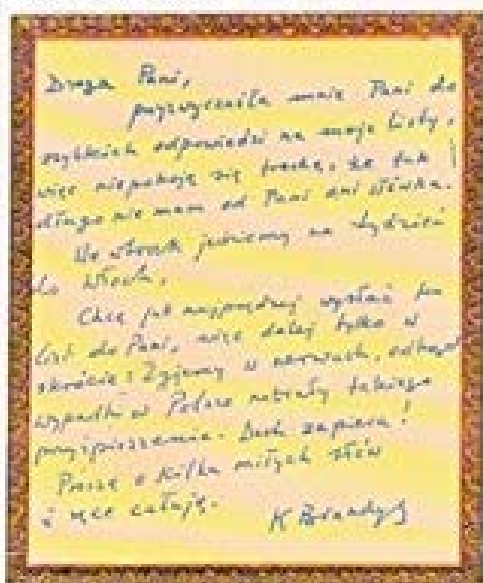 Droga Pani,
przyzwyczaiła mnie Pani do
szybkich odpowiedzi na moje listy,
więc niepokoję się trochę, że tak
długo nie mam od Pani ani słówka.
We wtorek jedziemy na tydzień
do Włoch.
Chcę jak najprędzej wysłać ten
list do Pani, więc dalej tylko w
skrócie: Żyjemy w nerwach, odkąd
wypadki w Polsce nabrały takiego
przyspieszenia. Dech zapiera!
Proszę o kilka miłych słów
i ręce całuję.
K Brandys